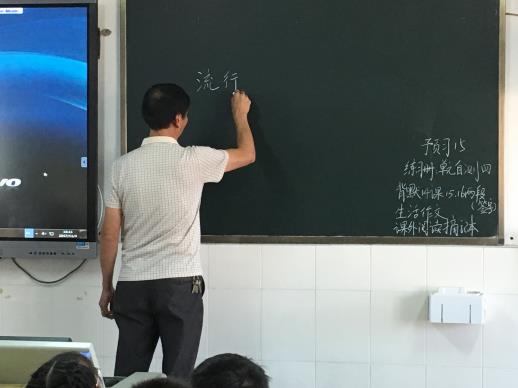 流行
预习15
练习册.单元自测四
背默14课15.16两段
(签字)
生活作文
课外阅读摘记本